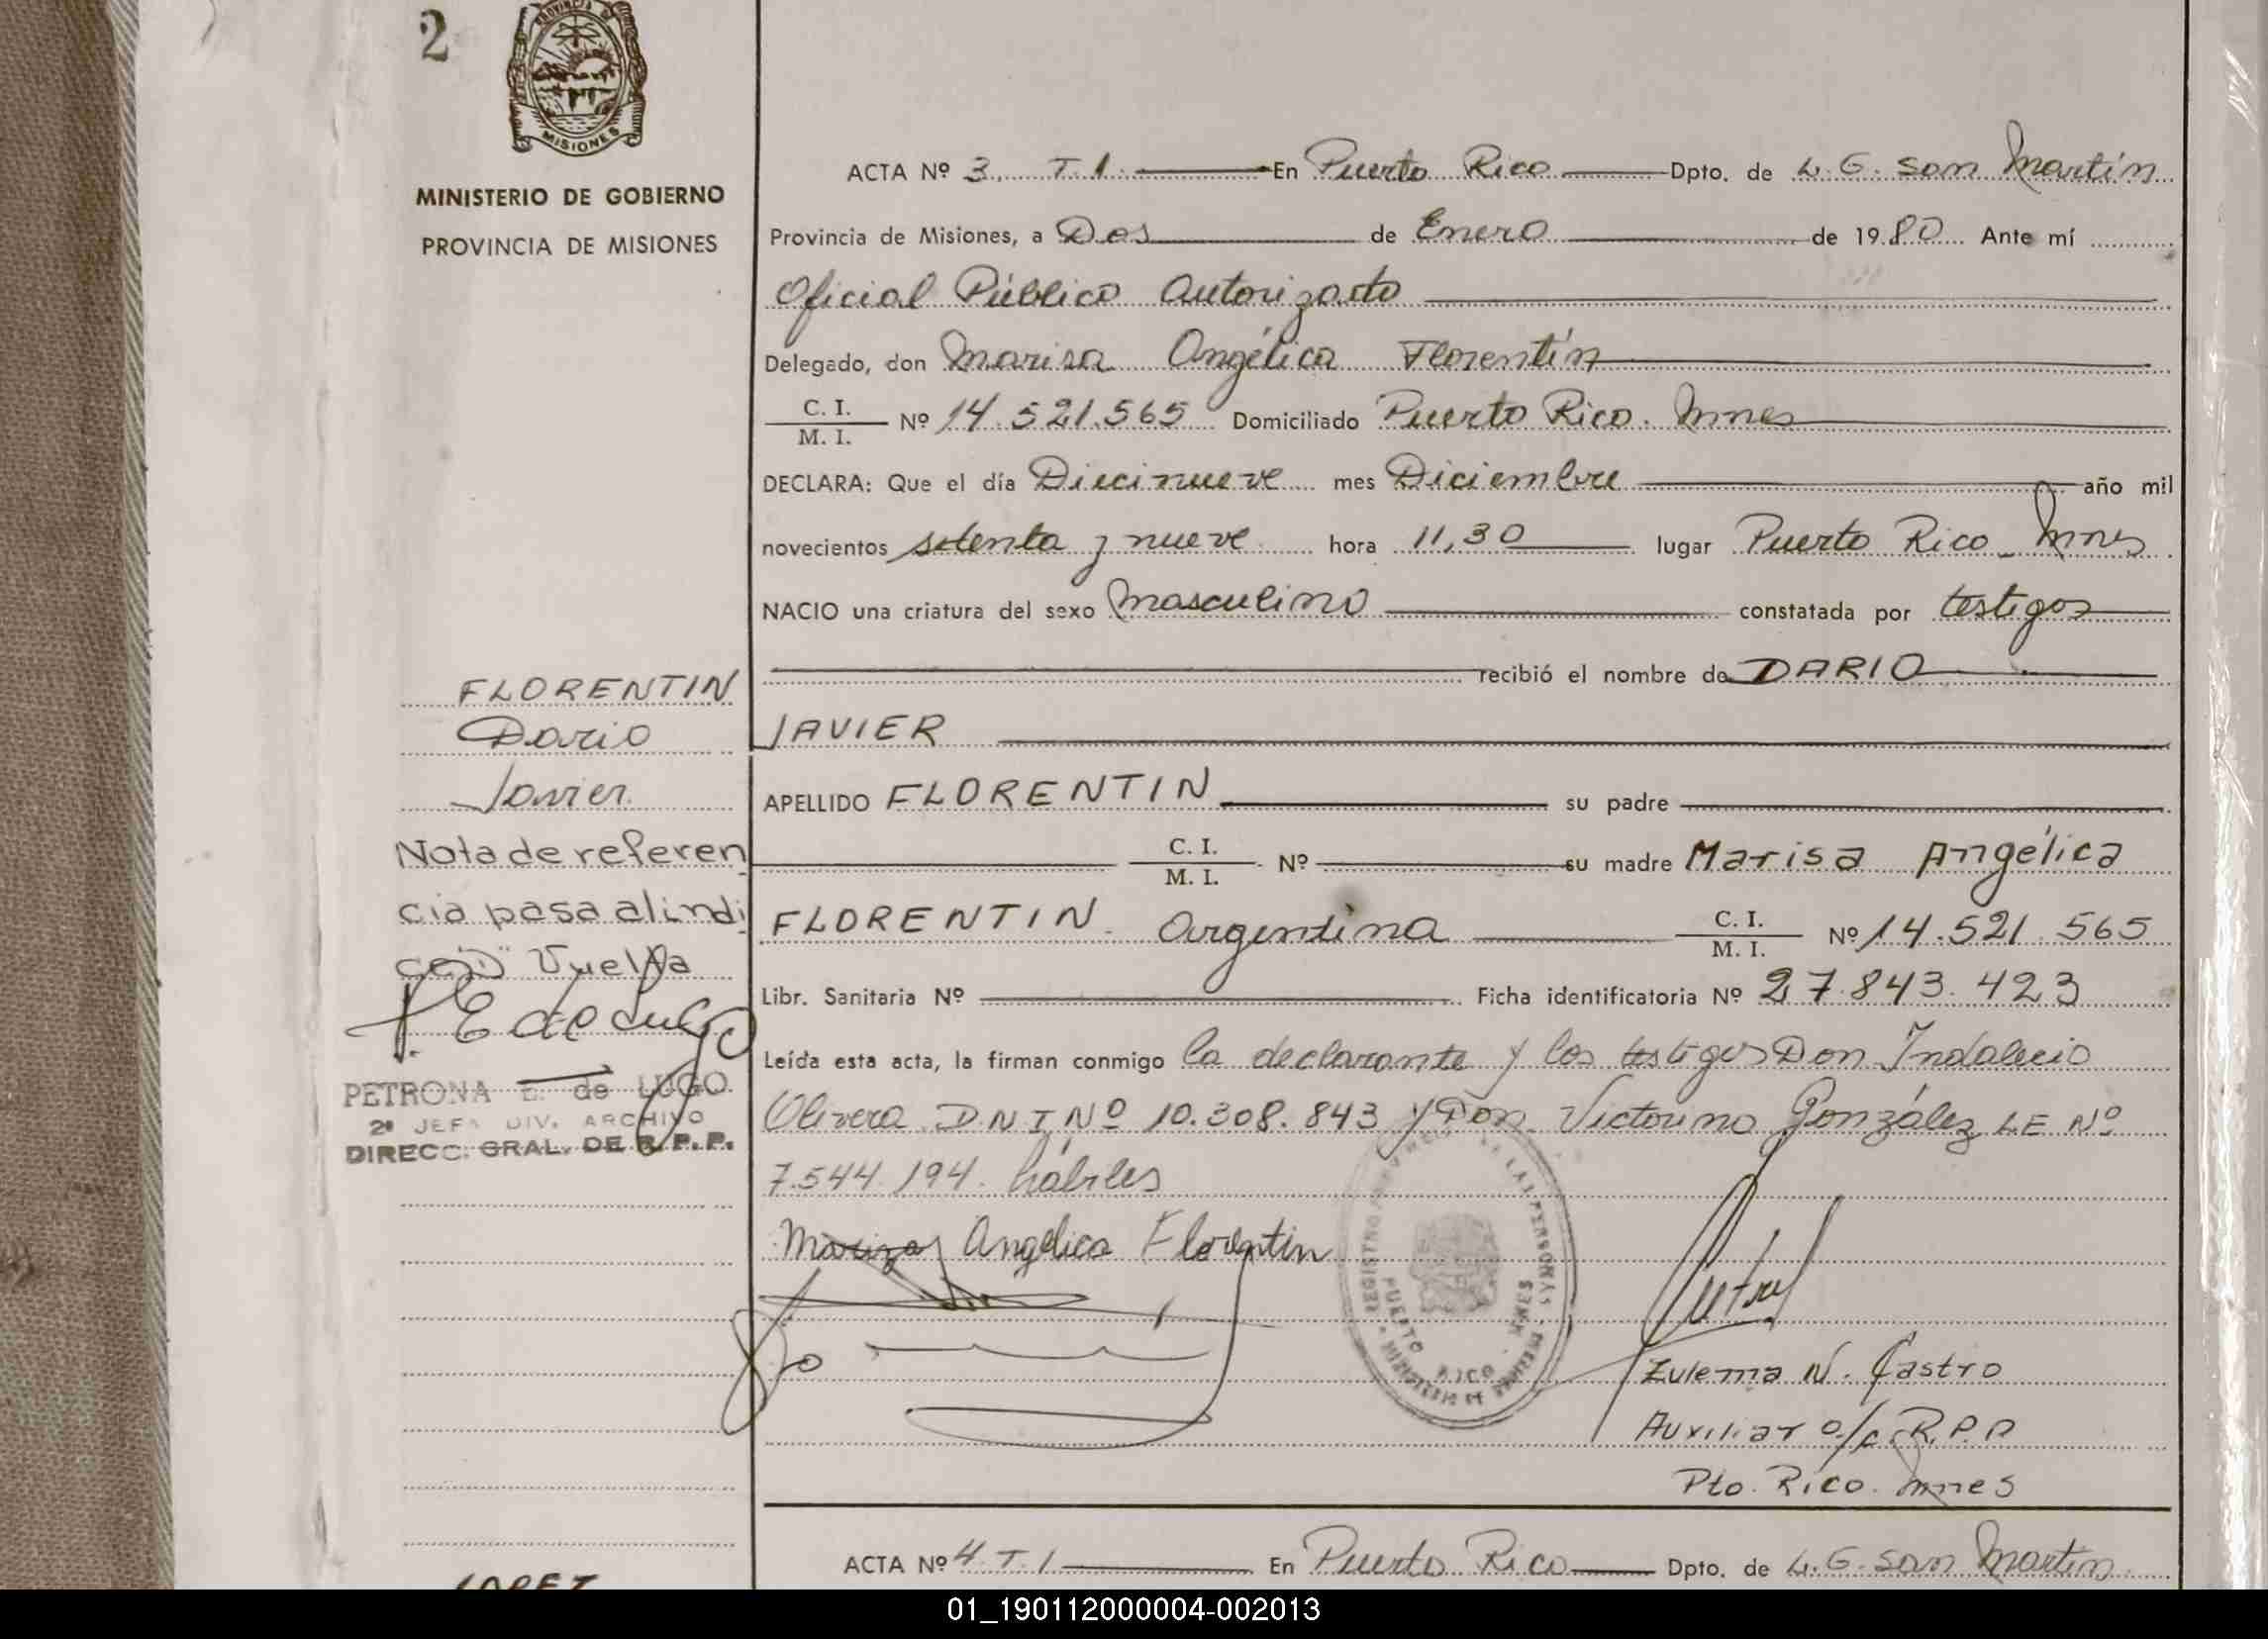 2
PROVINCIA DE
MISIONES
MINISTERIO DE GOBIERNO
PROVINCIA DE MISIONES
FLORENTIN
Dario
Javier
Nota de referen
cia pasa al indi
ce "D" Vuelta
PETRONA E. de LUGO
2º JEFA DIV. ARCHIVO
DIRECC. GRAL. DE R.P.P.
ACTA Nº 3. T. 1. En Puerto Rico Dpto. de L. G. San Martín
Provincia de Misiones, a Dos de Enero de 1980 Ante mí
Oficial Público Autorizado
Delegado, don Marisa Angélica Florentín
C. I.
M. I. Nº 14.521.565 Domiciliado Puerto Rico. Mnes
DECLARA: Que el día Diecinueve mes Diciembre año mil
novecientos setenta y nueve hora 11,30 lugar Puerto Rico - Mnes
NACIO una criatura del sexo masculino constatada por testigos
recibió el nombre de DARIO
JAVIER
APELLIDO FLORENTIN su padre
C. I.
M. I. Nº su madre Marisa Angélica
FLORENTIN. Argentina C. I.
M. I. Nº 14.521.565
Libr. Sanitaria Nº Ficha identificatoria Nº 27.843.423
Leída esta acta, la firman conmigo la declarante y los testigos Don Indalecio
Olivera D.N.I Nº 10.308.843 y Don Victorino González L.E Nº
7.544.194. hábiles
Mariza Angelica Florentin
REGISTRO DE LAS PERSONAS
PUERTO RICO - MNES
MINISTERIO DE
Zulema N. Castro
Auxiliar a/c. R.P.P
Pto. Rico. Mnes
ACTA Nº 4. T. 1 En Puerto Rico Dpto. de L. G. San Martín
LOPEZ
01_190112000004-002013